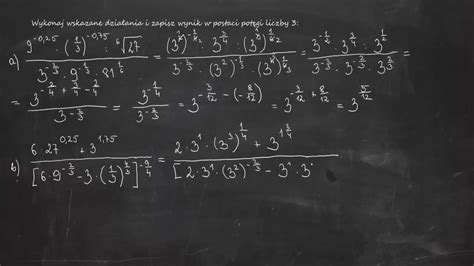 Wykonaj wskazane działania i zapisz wynik w postaci potęgi liczby 3:
a) \frac{9^{-0,25} \cdot (\frac{1}{3})^{-0,75} : \sqrt[6]{27}}{3^{-\frac{2}{3}} \cdot 9^{-\frac{1}{3}} \cdot 81^{\frac{1}{6}}} = \frac{(3^2)^{-\frac{1}{4}} \cdot 3^{\frac{3}{4}} : (3^3)^{\frac{1}{6}}}{3^{-\frac{2}{3}} \cdot (3^2)^{-\frac{1}{3}} \cdot (3^4)^{\frac{1}{6}}} = \frac{3^{-\frac{1}{2}} \cdot 3^{\frac{3}{4}} : 3^{\frac{1}{2}}}{3^{-\frac{2}{3}} \cdot 3^{-\frac{2}{3}} \cdot 3^{\frac{2}{3}}} =
= \frac{3^{-\frac{2}{4}+\frac{3}{4}-\frac{2}{4}}}{3^{-\frac{2}{3}}} = \frac{3^{-\frac{1}{4}}}{3^{-\frac{2}{3}}} = 3^{-\frac{3}{12}-(-\frac{8}{12})} = 3^{-\frac{3}{12}+\frac{8}{12}} = 3^{\frac{5}{12}}
b) \frac{6 \cdot 27^{0,25} + 3^{1,75}}{[6 \cdot 9^{-\frac{2}{3}} - 3 \cdot (\frac{1}{3})^{\frac{4}{3}}]^{-\frac{9}{4}}} = \frac{2 \cdot 3^1 \cdot (3^3)^{\frac{1}{4}} + 3^{1\frac{3}{4}}}{[2 \cdot 3^1 \cdot (3^2)^{-\frac{2}{3}} - 3^1 \cdot 3^{\cdot}}